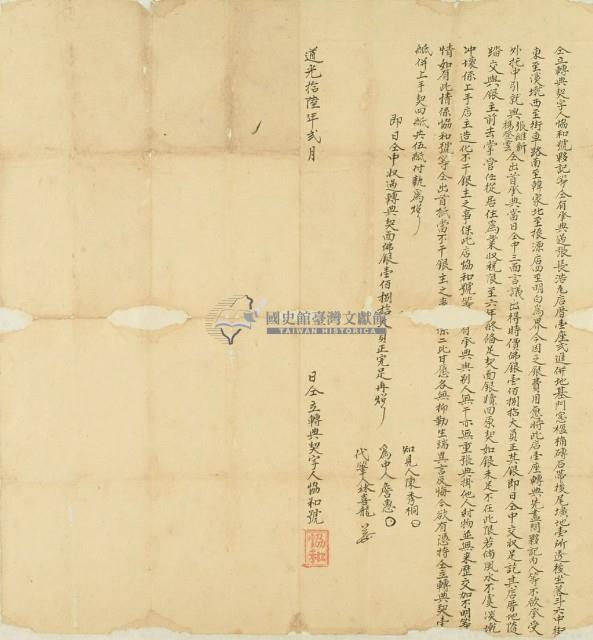 仝立轉典契字人協和號夥記等仝有承典過張長浩瓦店厝壹座貳進併地基門窓楹桷磚石帶後尾壙地壹所透後坐落斗六中街
東至溪坑西至街車路南至韓家北至振源店四至明白為界今因乏銀費用愿將此店壹座轉典先盡問夥記內人等不欲承受
外托中引就與張維新楊登雲仝出首承典當日仝中三面言議出得時價佛銀壹佰捌拾大員正其銀即日仝中交收足訖其店厝地隨
踏交與銀主前去掌管任從居住為業收稅限至六年終備足契面銀贖回原契如銀未足不在此限若倘風水不虞溪坑
冲壞係上手店主造化不干銀主之事保此店協和號等 有承典與別人無干亦無重張典掛他人財物並無來歷交加不明等
情如有此情係協和號等仝出首抵當不干銀主之事 係二比甘愿各無抑勒生端異言反悔今欲有憑特仝立轉典契壹
紙併上手契四紙共伍紙付執為炤
即日仝中收過轉典契面佛銀壹佰捌拾 員正完足再炤
知見人陳秀桐
為中人詹惠
代筆人林喜龍
道光拾陸年貳月 日仝立轉典契字人協和號
協和
國史館臺灣文獻館
TAIWAN HISTORICA